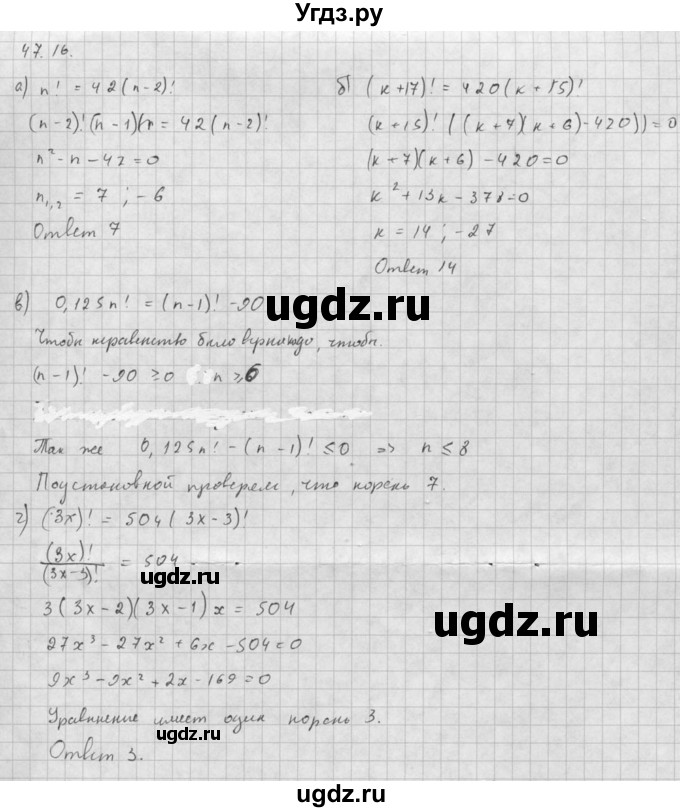 Угдз.ру
47.16.
а) n! = 42(n-2)!
(n-2)!(n-1)(n = 42(n-2)!
n²-n-42=0
n₁,₂ = 7 ; -6
Ответ 7
б) (к+17)! = 420(к+15)!
(к+15)!((к+7)(к+6)-420))=0
(к+7)(к+6)-420=0
к²+13к-378=0
к = 14 ; -27
Ответ 14
в) 0,125n! = (n-1)! -90
Чтобы неравенство было верно надо, чтобы.
(n-1)! -90 ≥0 n ≥6
Так же 0,125n! -(n-1)! ≤0 => n ≤ 8
Поустановной проверем, что корень 7.
г) (3x)! = 504(3x-3)!
(3x)!/(3x-3)! = 504
3(3x-2)(3x-1)x = 504
27x³-27x²+6x-504=0
9x³-9x²+2x-169=0
Уравниение имеет один корень 3.
Ответ 3.
ugdz.ru
ugdz.ru
ugdz.ru
ugdz.ru
ugdz.ru